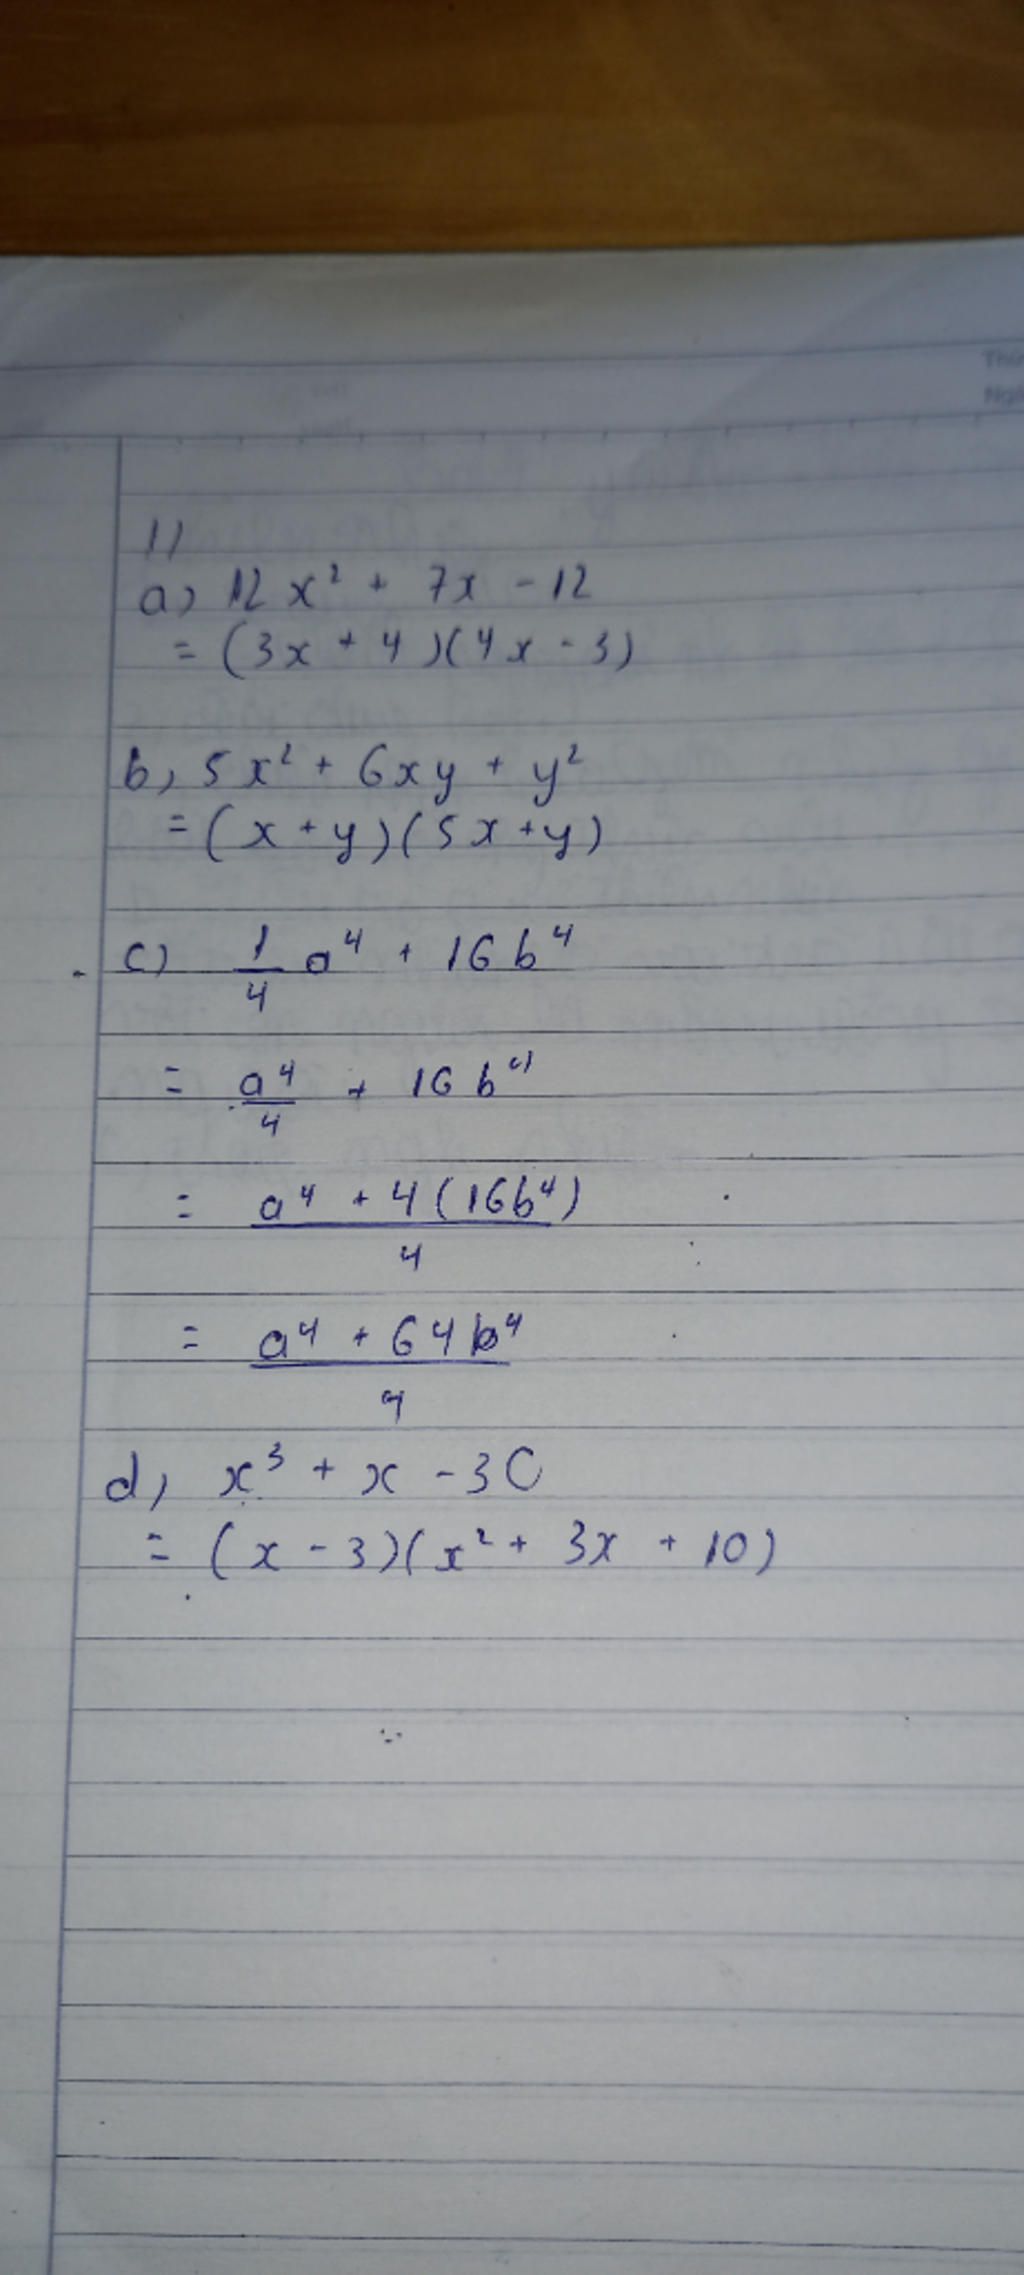 1)
a) 12x² + 7x - 12
= (3x + 4)(4x - 3)
b, 5x² + 6xy + y²
= (x + y)(5x + y)
c) 1/4 a⁴ + 16b⁴
= a⁴/4 + 16b⁴
= (a⁴ + 4(16b⁴))/4
= (a⁴ + 64b⁴)/4
d, x³ + x - 30
= (x - 3)(x² + 3x + 10)